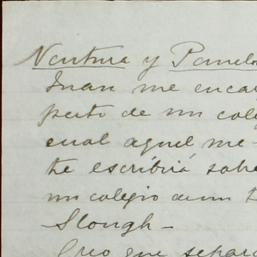 Ventura y Pamela
Juan me encar
pecto de un cole
cual aquel me
te escribirá sobr
un colegio
Slough -
Creo que separ